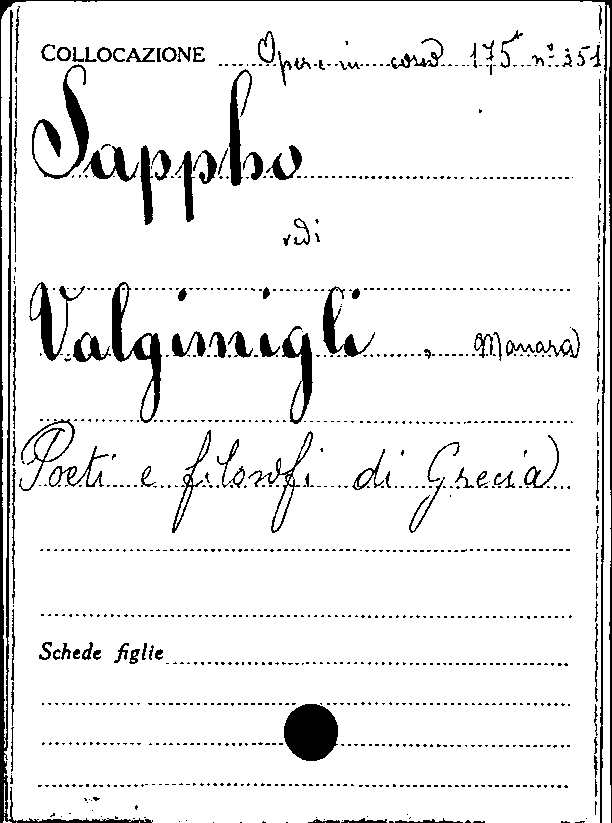 COLLOCAZIONE Opere in corso 175* nº 351
Sappho
vedi
Valgimigli, Manara
Poeti e filosofi di Grecia
Schede figlie